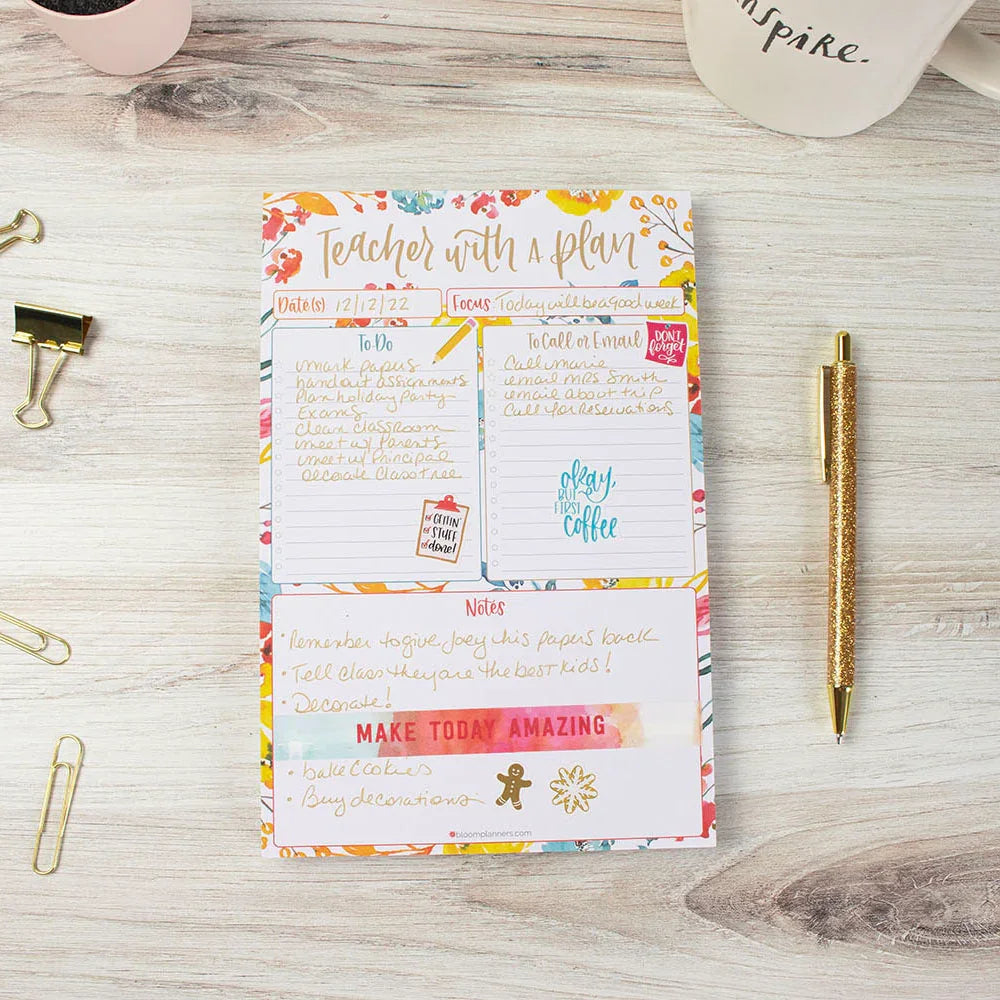 inspire.
Teacher with a plan
Date(s) 12/12/22
Focus Today will be a good week
To Do
mark papers
handout assignments
Plan holiday party
Exams
clean classroom
meet w/ Parents
meet w/ Principal
Decorate Class Tree
GETTIN'
STUFF
done!
To Call or Email
DON'T
forget
Call Marie
email MRS Smith
email about trip
Call for Reservations
okay,
BUT
FIRST
coffee
Notes
• Remember to give Joey his papers back
• Tell class they are the best kids!
• Decorate!
MAKE TODAY AMAZING
• bake Cookies
• Buy decorations
bloomplanners.com